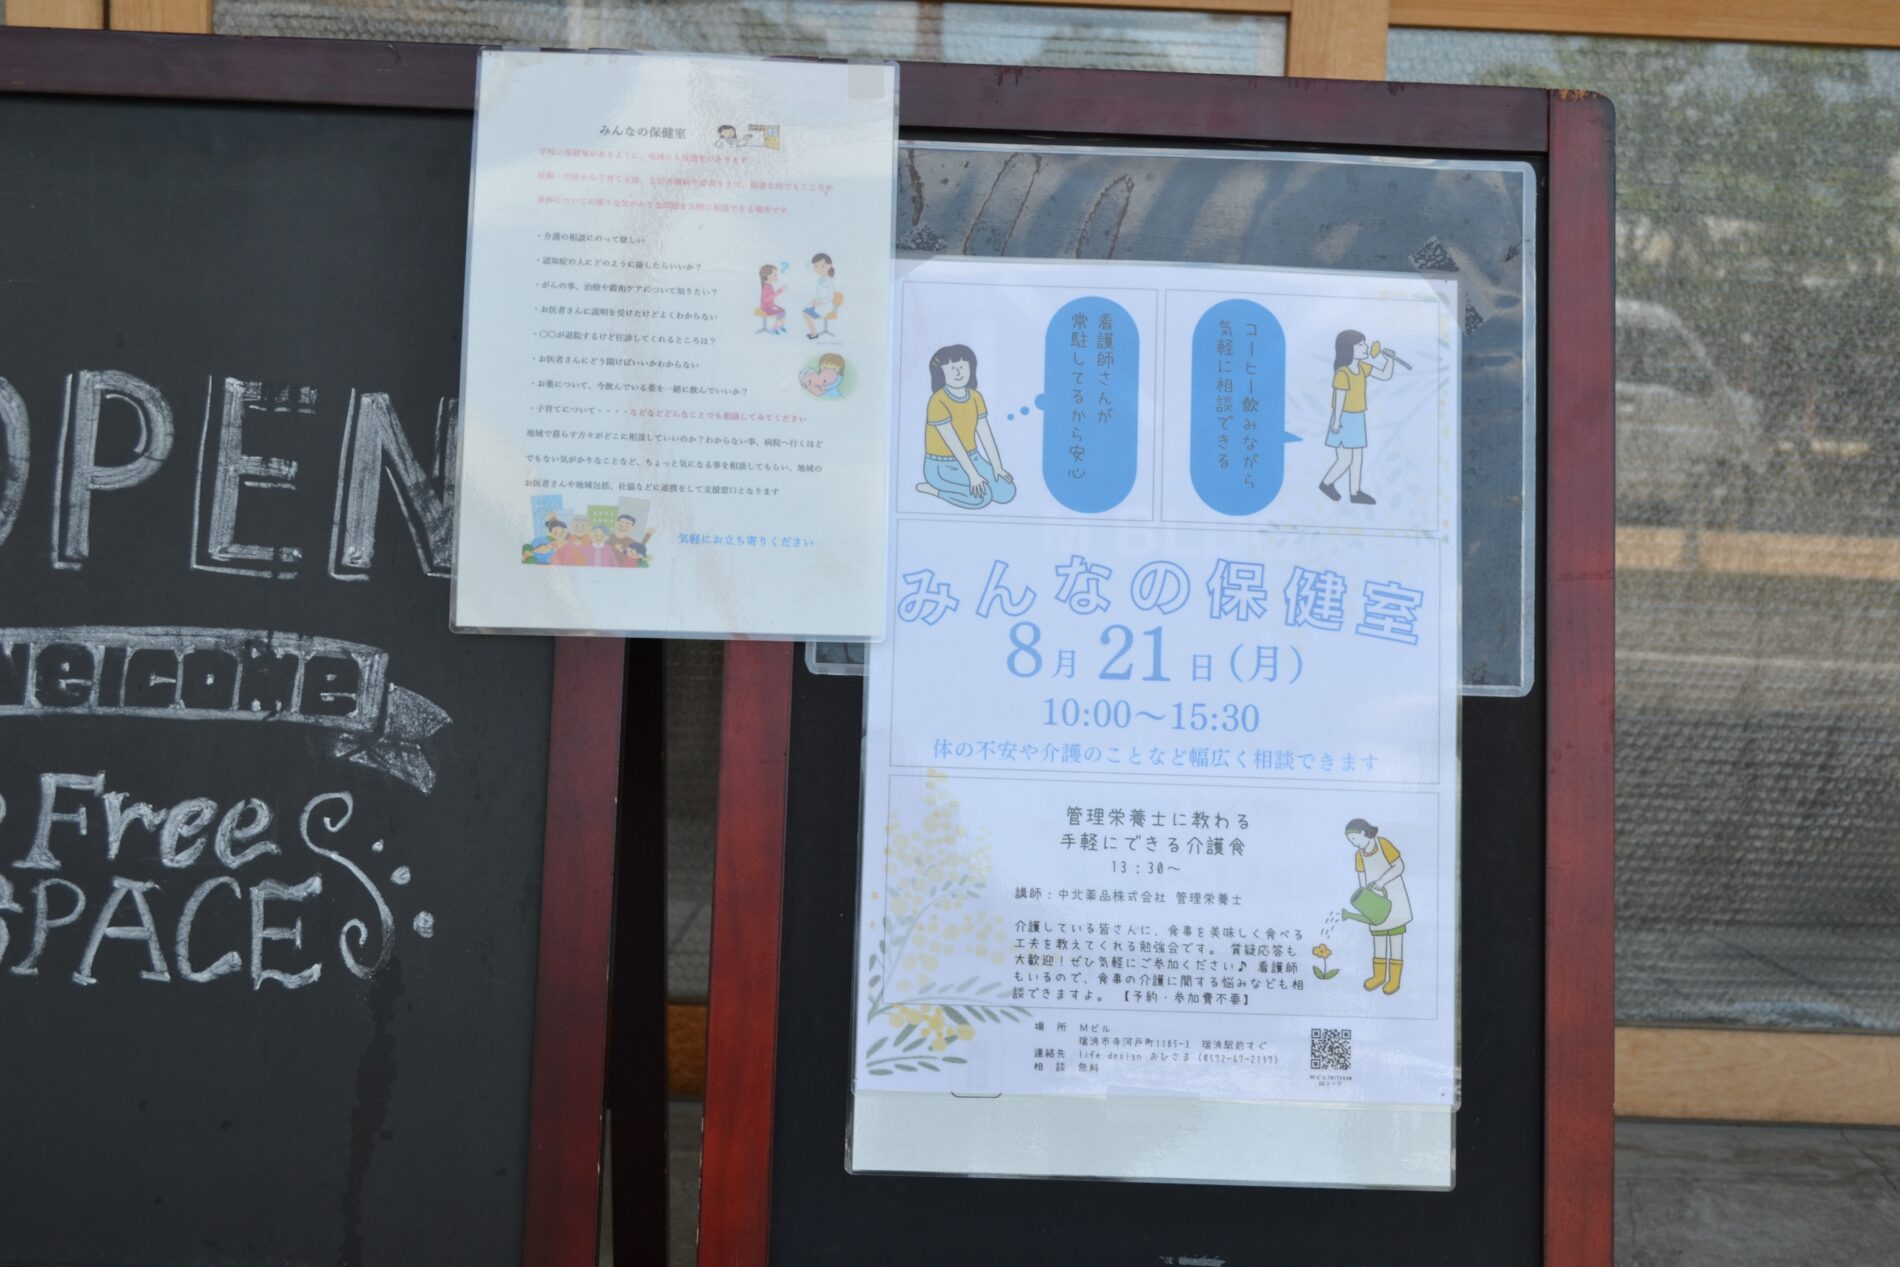 OPEN
Welcome
Free
SPACE
みんなの保健室
学校に保健室があるように、地域にも保健室があります
妊娠・出産から子育て支援、生活習慣病や看取りまで、健康な時でもこころや
身体についての様々な気がかりな問題を気軽に相談できる場所です
・介護の相談にのって欲しい
・認知症の人にどのように接したらいいか？
・がんの事、治療や緩和ケアについて知りたい？
・お医者さんに説明を受けたけどよくわからない
・〇〇が退院するけど往診してくれるところは？
・お医者さんにどう聞けばいいかわからない
・お薬について、今飲んでいる薬を一緒に飲んでいいか？
・子育てについて・・・・などなどどんなことでも相談してみてください
地域で暮らす方々がどこに相談していいのか？わからない事、病院へ行くほど
でもない気がかりなことなど、ちょっと気になる事を相談してもらい、地域の
お医者さんや地域包括、社協などに連携をして支援窓口となります
気軽にお立ち寄りください
看護師さんが
常駐してるから安心
コーヒー飲みながら
気軽に相談できる
みんなの保健室
8月21日(月)
10:00〜15:30
体の不安や介護のことなど幅広く相談できます
管理栄養士に教わる
手軽にできる介護食
13：30〜
講師：中北薬品株式会社 管理栄養士
介護している皆さんに、食事を美味しく食べる
工夫を教えてくれる勉強会です。 質疑応答も
大歓迎！ぜひ気軽にご参加ください♪ 看護師
もいるので、食事の介護に関する悩みなども相
談できますよ。 【予約・参加費不要】
場 所 Mビル
瑞浪市寺河戸町1185-3 瑞浪駅前すぐ
連絡先 life design おひさま (0572-67-2117)
相 談 無料